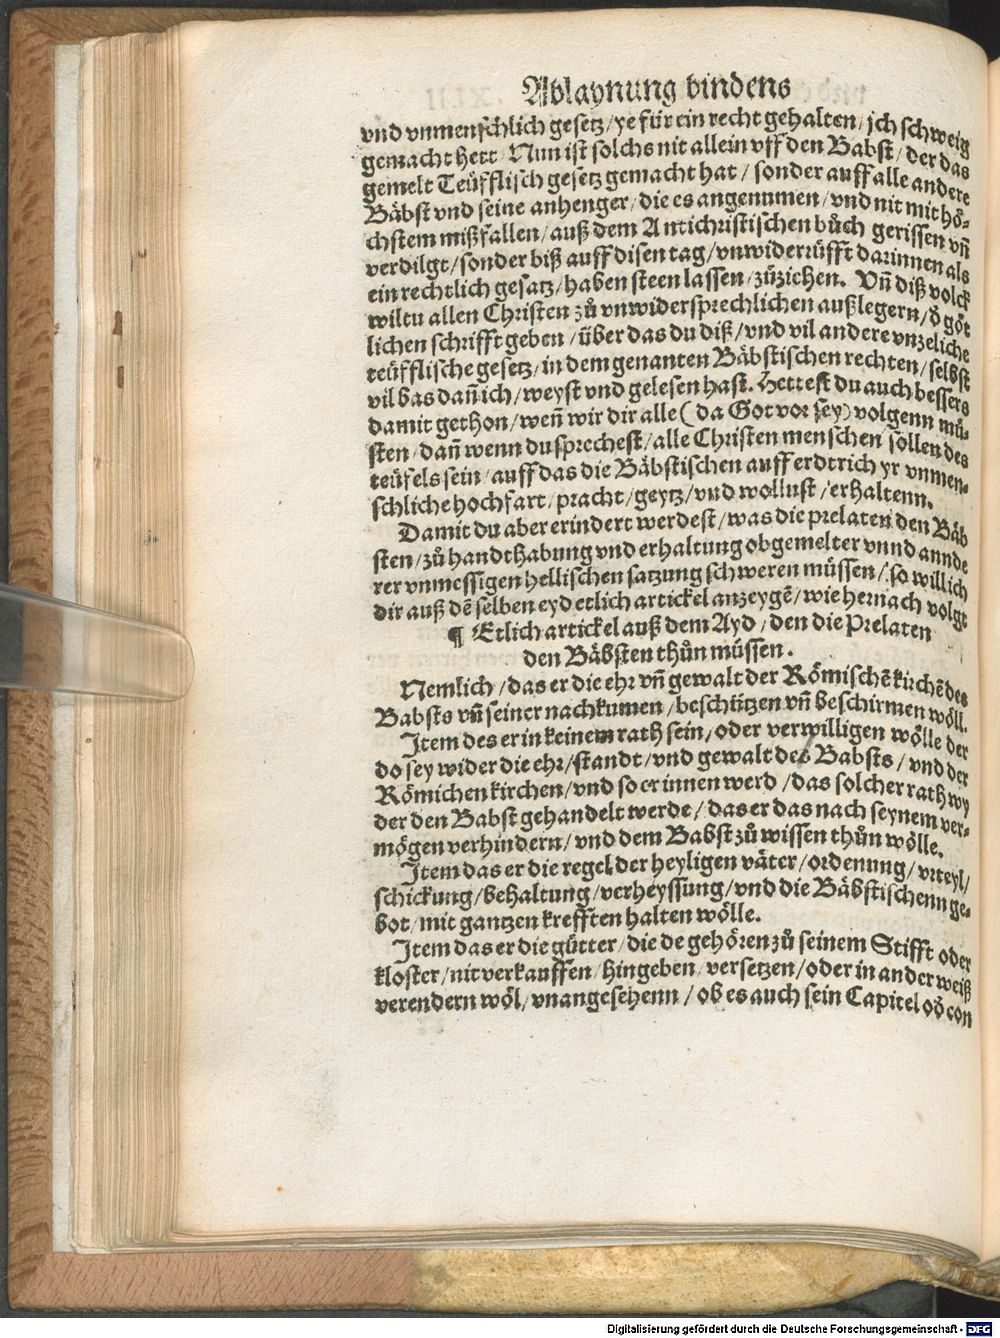 Ablaynung bindens
vnd vnmenschlich gesetz/ ye für ein recht gehalten/ jch schweig
gemacht hett/ Nun ist solchs nit allein vff den Babst/ der das
gemelt Teüfflisch gesetz gemacht hat/ sonder auff alle andere
Bäbst vnd seine anhenger/ die es angenummen/ vnd nit mit hö⸗
chstem mißfallen/ auß dem Antichristischen bůch gerissen vñ
verdilgt/ sonder biß auff disen tag/ vnwiderrüfft darinnen als
ein rechtlich gesatz/ haben steen lassen/ zůziehen. Vñ diß volck
wiltu allen Christen zů vnwidersprechlichen außlegern/ ð göt
lichen schrifft geben/ über das du diß/ vnd vil andere vnzeliche
teüfflische gesetz/ in dem genanten Bäbstischen rechten/ selbst
vil bas dañ ich/ weyst vnd gelesen hast. Hettest du auch bessers
damit gethon/ weñ wir dir alle (da Got vor sey) volgenn mü⸗
sten/ dañ wenn du sprechest/ alle Christen menschen sollen des
teüfels sein/ auff das die Bäbstischen auff erdtrich yr vnmen⸗
schliche hochfart/ pracht/ geytz/ vnd wollust/ erhaltenn.
Damit du aber erindert werdest/ was die prelaten den Bäb
sten/ zů handthabung vnd erhaltung obgemelter vnnd annde
rer vnmessigen hellischen satzung schweren müssen/ so will ich
dir auß dẽ selben eyd etlich artickel anzeygẽ/ wie hernach volgt
¶ Etlich artickel auß dem Ayd/ den die Prelaten
den Bäbsten thůn müssen.
Nemlich/ das er die ehr vñ gewalt der Römischẽ kirchẽ des
Babsts vñ seiner nachkumen/ beschützen vñ beschirmen wöll.
Item des er in keinem rath sein/ oder verwilligen wölle der
do sey wider die ehr/ standt/ vnd gewalt des Babsts/ vnd der
Römichen kirchen/ vnd so er innen werd/ das solcher rath wy
der den Babst gehandelt werde/ das er das nach seynem ver⸗
mögen verhindern/ vnd dem Babst zů wissen thůn wölle.
Item das er die regel der heyligen väter/ ordenung/ vrteyl/
schickung/ behaltung/ verheyssung/ vnd die Bäbstischenn ge⸗
bot/ mit gantzen krefften halten wölle.
Item das er die gütter/ die de gehören zů seinem Stifft oder
kloster/ nit verkauffen/ hingeben/ versetzen/ oder in ander weiß
verendern wöl/ vnangesehenn/ ob es auch sein Capitel oð con
Digitalisierung gefördert durch die Deutsche Forschungsgemeinschaft - DFG